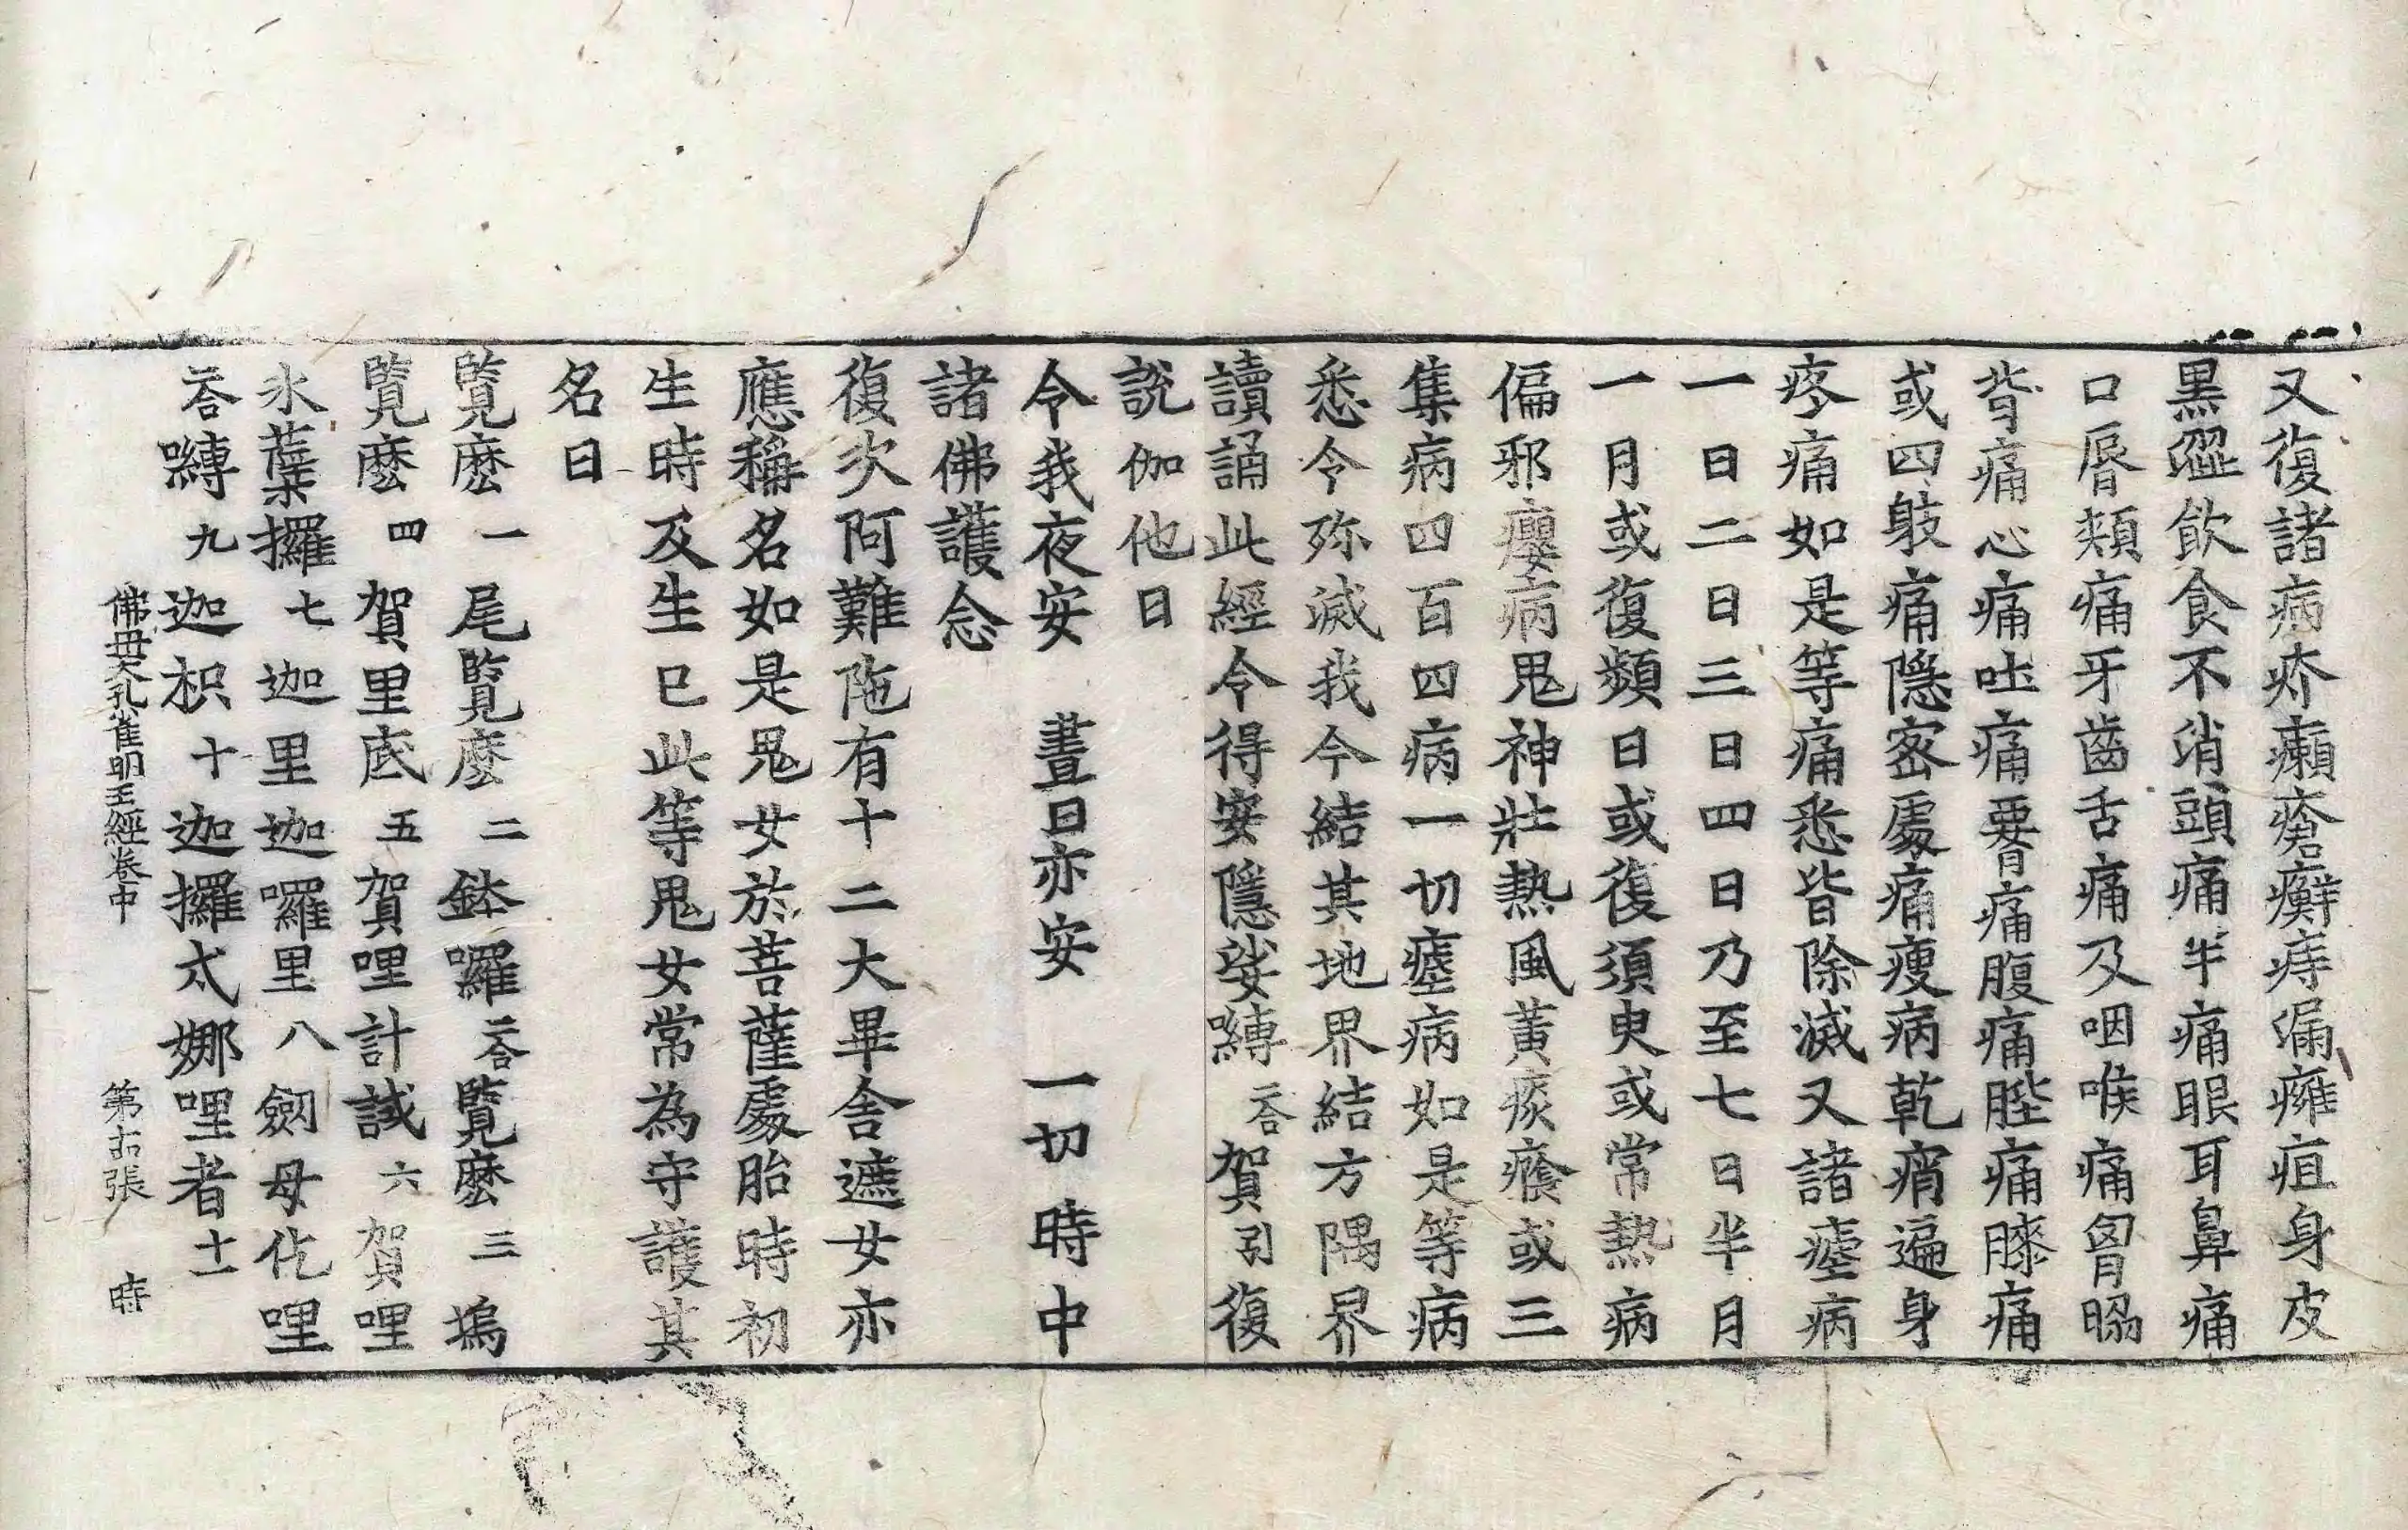 又復諸病疥癩瘡癬痔漏癰疽身皮
黒澀飲食不消頭痛半痛眼耳鼻痛
口脣頰痛牙齒舌痛及咽喉痛胷脇
背痛心痛肚痛腰痛腹痛髀痛膝痛
或四躰痛隱密處痛瘦病乾痟遍身
疼痛如是等痛悉皆除滅又諸瘧病
一日二日三日四日乃至七日半月
一月或復頻日或復須臾或常熱病
偏邪癭病鬼神壯熱風黃痰癊或三
集病四百四病一切瘧病如是等病
悉令殄滅我今結其地界結方隅界
讀誦此經令得安隱娑嚩二合賀引復
說伽他曰
令我夜安　晝日亦安　一切時中
諸佛護念
復次阿難陁有十二大畢舍遮女亦
應稱名如是鬼女於菩薩處胎時初
生時及生已此等鬼女常為守護其
名曰
覽麽一尾覽麽二鉢囉二合覽麽三塢
覽麽四賀里底五賀哩計試六賀哩
氷蘖攞七迦里迦囉里八劒母仡哩
二合嚩九迦枳十迦攞戍娜哩者十一
佛母大孔雀明王經卷中　第　張　時